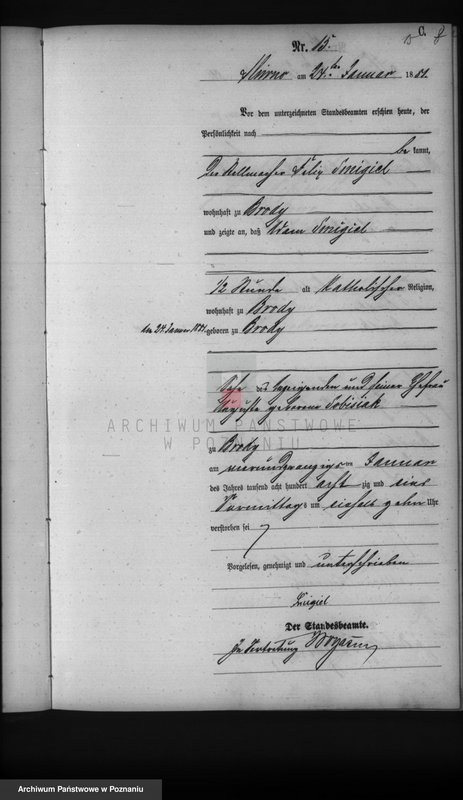 C.
Nr. 15.
am 24ten Januar 1881.
Vor dem unterzeichneten Standesbeamten erschien heute, der
Persönlichkeit nach
be kannt,
der Stellmacher Felix Smigiel
wohnhaft zu Brody
und zeigte an, daß Adam Smigiel
1/2 Stunde alt Katholischer Religion,
wohnhaft zu Brody
den 24. Januar 1881 geboren zu Brody
Sohn des Anzeigenden und seiner Ehefrau
Auguste geborene Sobisiak
ARCHIWUM PAŃSTWOWE
W POZNANIU
zu Brody
am vierundzwanzigsten Januar
des Jahres tausend acht hundert acht zig und eins
Vormittags um einhalb zehn Uhr
verstorben sei
Vorgelesen, genehmigt und unterschrieben
Smigiel
Der Standesbeamte.
In Vertretung
Archiwum Państwowe w Poznaniu